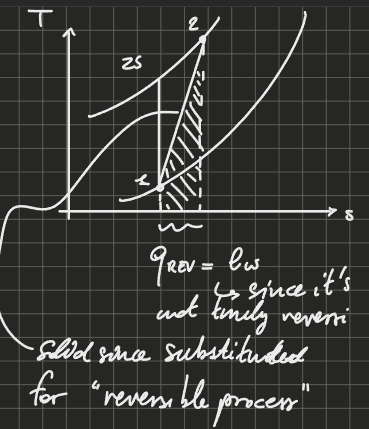 T
2
2s
1
s
qREV = lw
↳ since it's
not truly reversi
solid since substituted
for "reversible process"